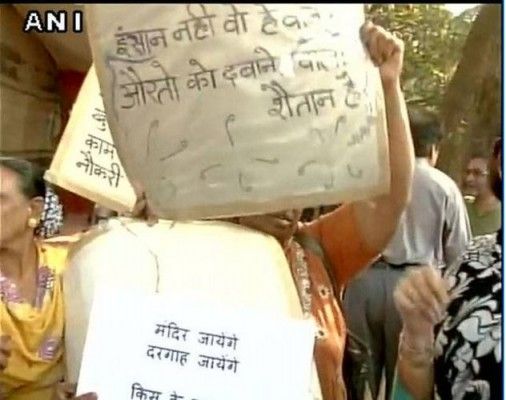 ANI
इंसान नहीं वो है
औरतो को दबाने वाले
शैतान है
काम
नौकरी
मंदिर जायेंगे
दरगाह जायेंगे
किस के